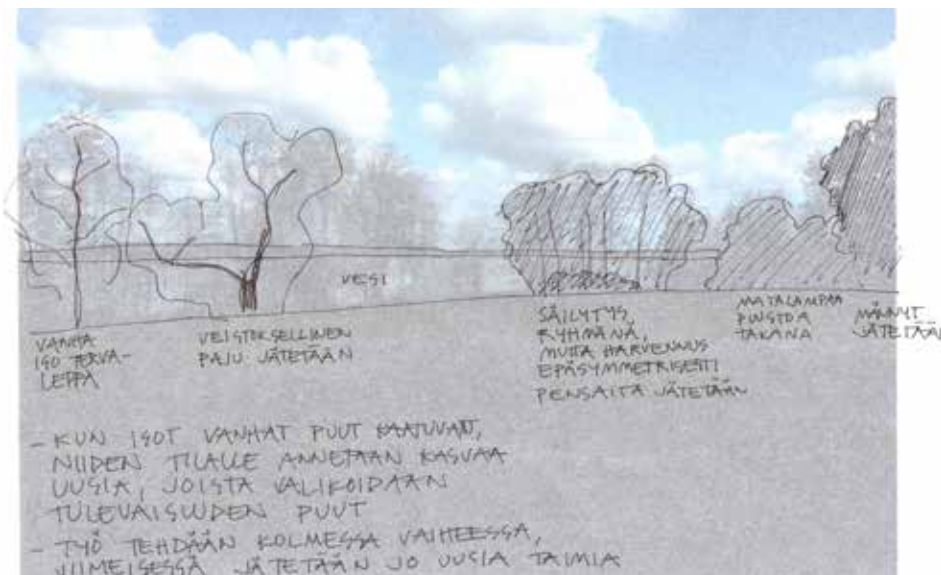 VESI
VANHA
ISO TERVA-
LEPPÄ
VEISTOKSELLINEN
PAJU JÄTETÄÄN
SÄILYTYS
RYHMÄNÄ,
MUTTA HARVENNUS
EPÄSYMMETRISESTI
PENSAITA JÄTETÄÄN
MATALAMPAA
PUUSTOA
TAKANA
MÄNNYT
JÄTETÄÄN
- KUN ISOT VANHAT PUUT KAATUVAT,
NIIDEN TILALLE ANNETAAN KASVAA
UUSIA, JOISTA VALIKOIDAAN
TULEVAISUUDEN PUUT
- TYÖ TEHDÄÄN KOLMESSA VAIHEESSA,
VIIMEISESSÄ JÄTETÄÄN JO UUSIA TAIMIA